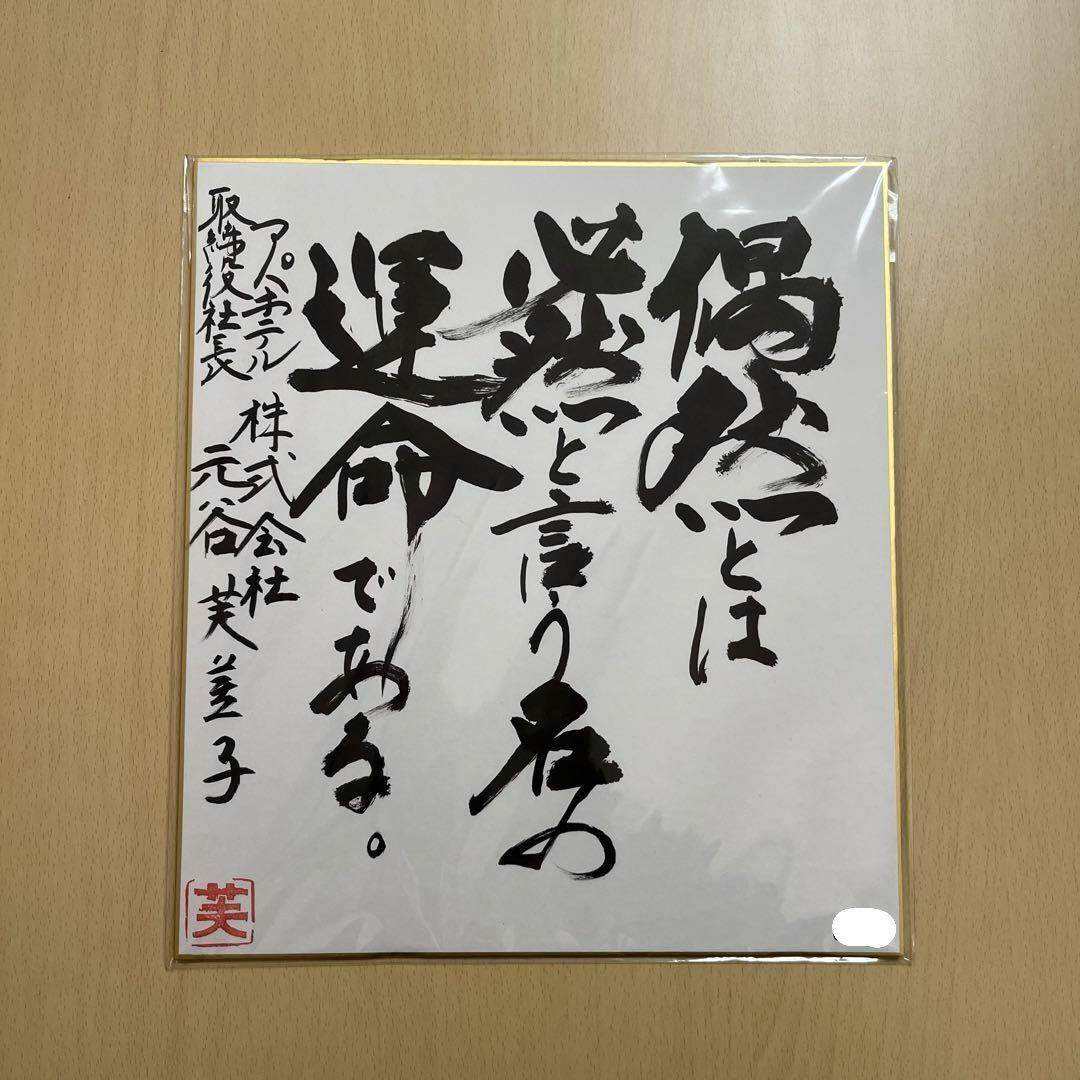 偶然とは
必然と言う名の
運命である。
アパホテル 株式会社
取締役社長 元谷 芙美子
芙